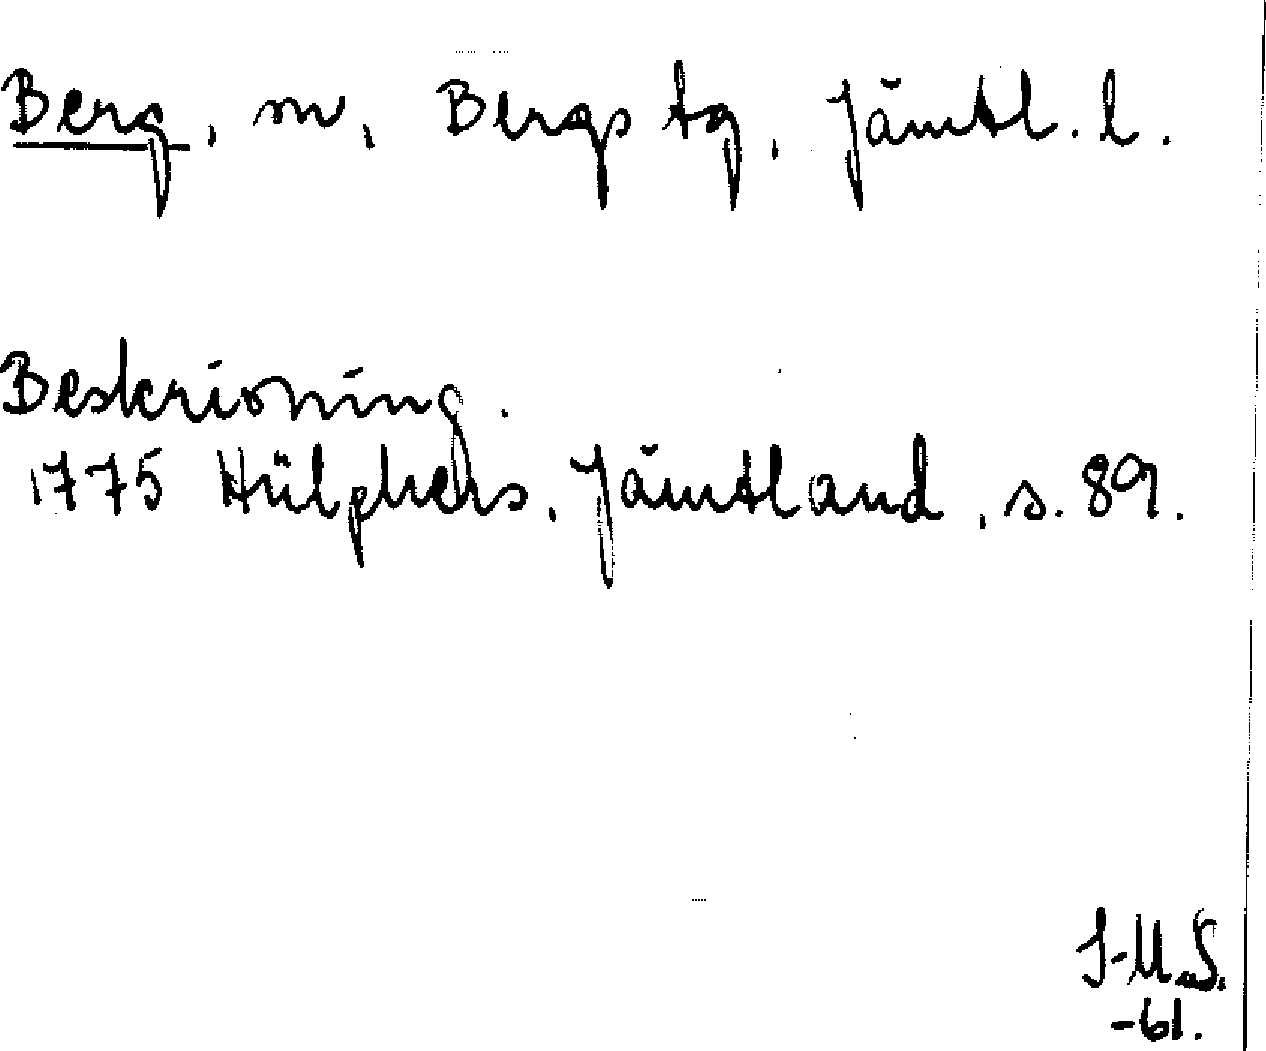 Berg, sn, Bergs tg, Jämtl. l.
Beskrivning.
1775 Hülphers, Jämtland, s. 89.
I-M.S.
-61.